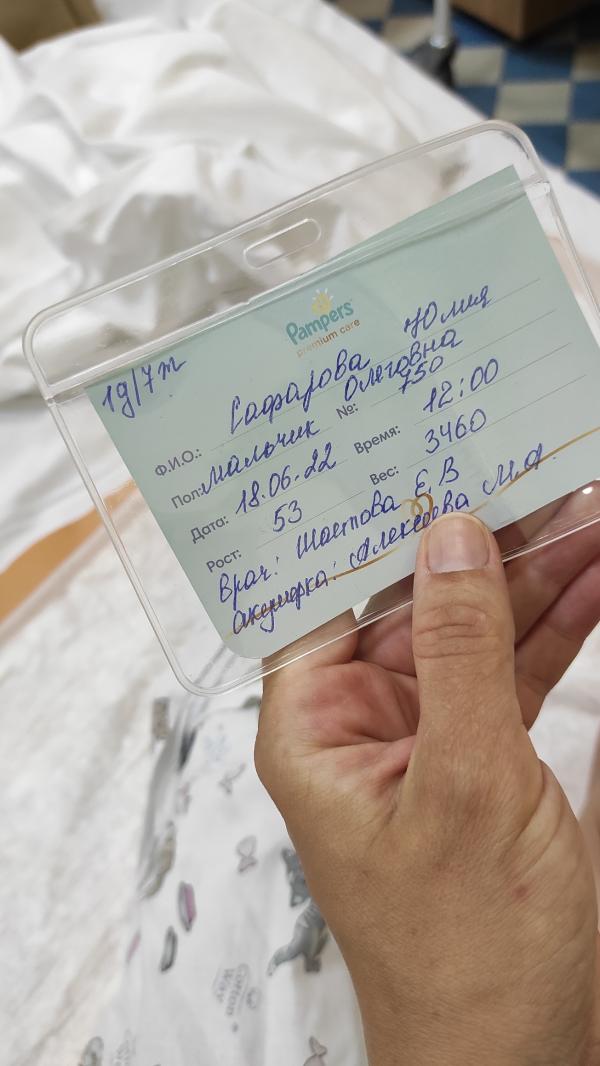 Pampers
premium care
1g/7m
Ф.И.О.: Сафарова Юлия
Олеговна
Пол: мальчик №: 750
Дата: 18.06.22 Время: 12:00
Рост: 53 Вес: 3460
Врач: Е.В
Акушерка: Алексеева М.А.
Cotton
Way